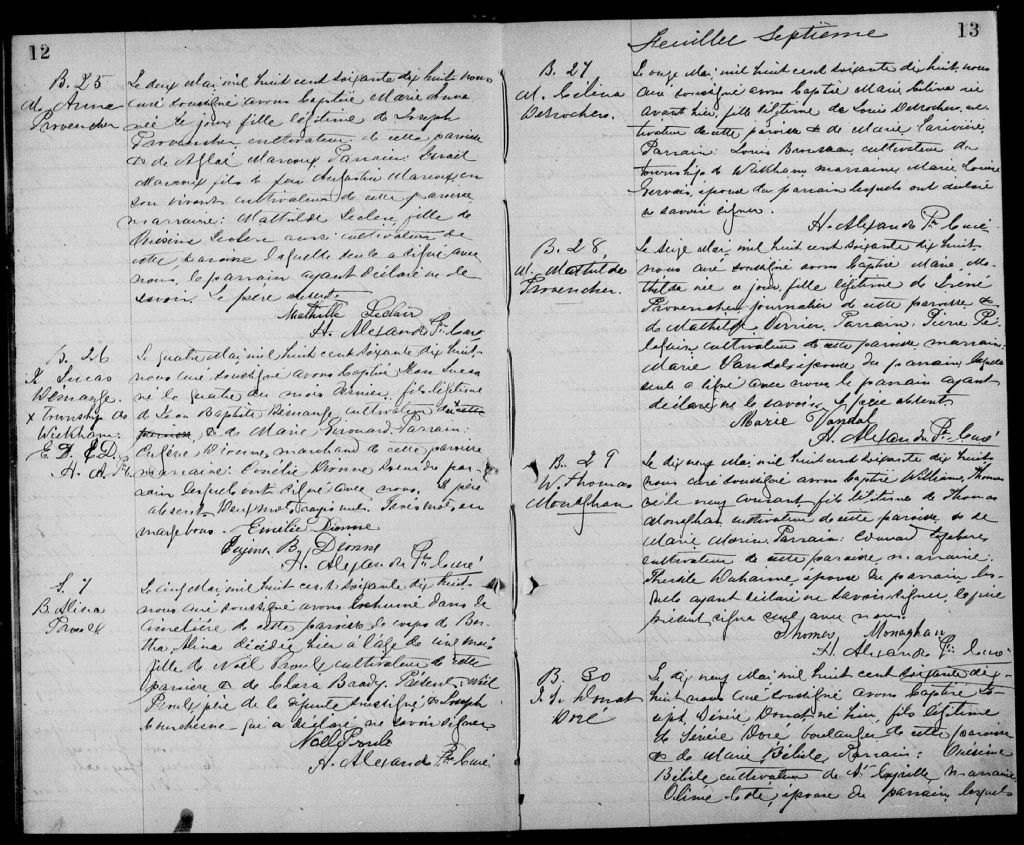 12
B. 25
M. Anna
Provencher
Le deux Mai, mil huit cent soixante dix huit, nous
curé soussigné avons baptisé Marie Anna
née ce jour, fille légitime de Joseph
Provencher cultivateur de cette paroisse
& de Aglaé Marcoux. Parrain:
Marcoux fils de feu Augustin Marcoux en
son vivant cultivateur de cette paroisse
marraine: Mathilde Leclerc, fille de
Onésime Leclerc aussi cultivateur de
cette paroisse laquelle seule a signé avec
nous, le parrain ayant déclaré ne le
savoir. Le père absent.
Mathilde Leclair
H. Alexandre Ptre Curé
B. 26
J. Lucas
Démange.
x Township de
Wickham.
E. D. E. D.
H. A. Pt.
Le quatre Mai, mil huit cent soixante dix huit,
nous curé soussigné avons baptisé Jean Lucas
né le quatre du mois dernier, fils légitime
de Jean Baptiste Démange, cultivateur de cette
paroisse, & de Marie Girouard. Parrain:
Eugène Dionne, marchand de cette paroisse
marraine: Emélie Dionne soeur du par-
rain lesquels ont signé avec nous. Le père
absent. Deux mots rayés nuls. Trois mots en
marge bons. Emélie Dionne
Eugène B. Dionne
H. Alexandre Ptre Curé
S. 7
B. Alina
Proulx
Le cinq Mai, mil huit cent soixante dix huit,
nous curé soussigné avons inhumé dans le
cimetière de cette paroisse le corps de Ber-
tha Alina décédée hier à l'âge de cinq mois
fille de Noël Proulx cultivateur de cette
paroisse & de Clara Brady. Présent: Noël
Proulx, père de la défunte soussigné & Joseph
Courchesne qui a déclaré ne savoir signer.
Noël Proulx
H. Alexandre Ptre Curé
Feuillet Septième
13
B. 27
M. Celina
Desrochers.
Le onze Mai, mil huit cent soixante dix huit, nous
curé soussigné avons baptisé Marie Celina née
avant hier, fille légitime de Louis Desrochers, cul-
tivateur de cette paroisse & de Marie Larivière,
Parrain: Louis Brousseau, cultivateur du
township de Wickham, marraine: Marie Louise
Gervais, épouse du parrain lesquels ont déclaré
ne savoir signer.
H. Alexandre Ptre Curé.
B. 28,
M. Mathilde
Provencher.
Le seize Mai, mil huit cent soixante dix huit,
nous curé soussigné avons baptisé Marie, Ma-
thilda née ce jour, fille légitime de Irénée
Provencher, journalier de cette paroisse &
de Mathilde Verrier, Parrain: Pierre Pé-
cultivateur de cette paroisse, marraine:
Marie Vandal, épouse du parrain, laquelle
seule a signé avec nous le parrain ayant
déclaré ne le savoir. Le père absent.
Marie Vandal
H. Alexandre Ptre Curé
B. 29
W. Thomas
Monaghan
Le dix neuf Mai, mil huit cent soixante dix huit,
nous curé soussigné avons baptisé William, Thomas
né le neuf courant, fils légitime de Thomas
Monaghan, cultivateur de cette paroisse, & de
Marie Morin. Parrain: Edouard Lefebvre,
cultivateur de cette paroisse, marraine:
Thersile Duhaime, épouse du parrain les-
quels ayant déclaré ne savoir signer, le père
présent signe seul avec nous.
Thomas Monaghan
H. Alexandre Ptre Curé
B. 30
J. D. Donat
Doré
Le dix neuf Mai, mil huit cent soixante dix-
huit, nous curé soussigné avons baptisé Jo-
seph, Désiré, Donat né hier, fils légitime
de Sévère Doré boulanger de cette paroisse
& de Marie Bélisle, Parrain: Onésime
Bélisle, cultivateur de St Cyrille, marraine:
Olimé Coté, épouse du parrain, lesquels